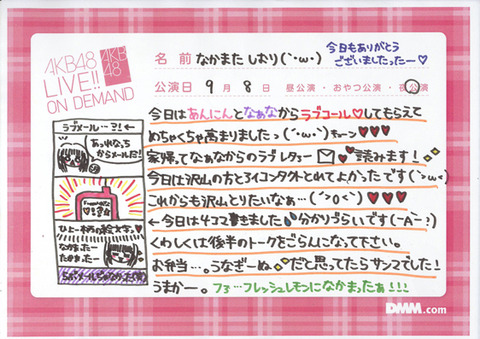 AKB48
LIVE!!
ON DEMAND
AKB
48
名前 なかまた しおり(`・ω・´)
今日もありがとう
ございましたったー♡
公演日 9月 8日 昼公演・おやつ公演・夜公演
今日はあんにんとなぁなからラブコール♡してもらえて
めちゃくちゃ高まりましたっ(`・ω・´)キューン♥♥♥
家帰てなぁなからのラブレター✉♥読みます!
今日は沢山の方と3イコンタクトとれてよかったです(>ω<)
これからも沢山とりたいなぁ…(´>o<`)♥♥♥
←今日は4コマ書きました 分かりづらいです(ーдー:)
くわしくは後半のトークをごらんになって下さい。
お弁当…。うなぎーぬ だと思ってたらサンマでした!
うまかー。フろ…フレッシュレモンになかまったぁ!!!
ラブメール…?!←
あっれなっち
からメールだ!
ひょー柄の絵文字。
なかまったー
たかまったー
DMM.com